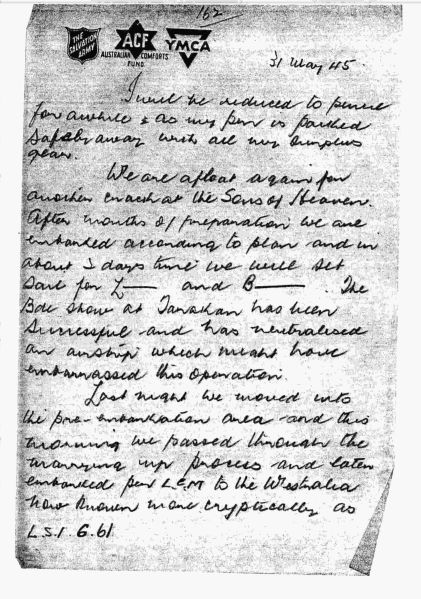 162
THE SALVATION ARMY
ACF
AUSTRALIAN COMFORTS FUND
YMCA
31 May 45.
I will be reduced to pencil
for awhile & as my pen is packed
safely away with all my surplus
gear.
We are afloat again for
another crack at the Sons of Heaven.
After months of preparation we are
embarked according to plan and in
about 5 days time we will set
sail for L—— and B——. The
Bde show at Tarakan has been
successful and has neutralised
an airstrip which might have
embarrassed this operation.
Last night we moved into
the pre-embarkation area and this
morning we passed through the
marrying up process and later
embarked per L.C.M to the Westralia
now known more cryptically as
L.S.I. 6.61